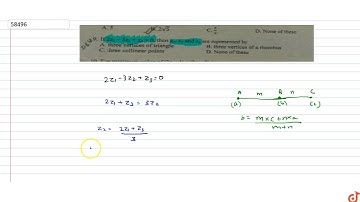 58496
A. 3
B. 2√2
C.
D. None of these
If 2z₁ - 3z₂ + z₃ = 0, then z₁, z₂ and z₃ are represented by
A. three vertices of triangle
B. three vertices of a rhombus
C. three collinear points
D. None of these
2z₁-3z₂+z₃=0
2z₁ + z₃ = 3z₂
z₂ = 2z₁+z₃ / 3
A m B n C
(a) (b) (c)
b = m×c+n×a / m+n